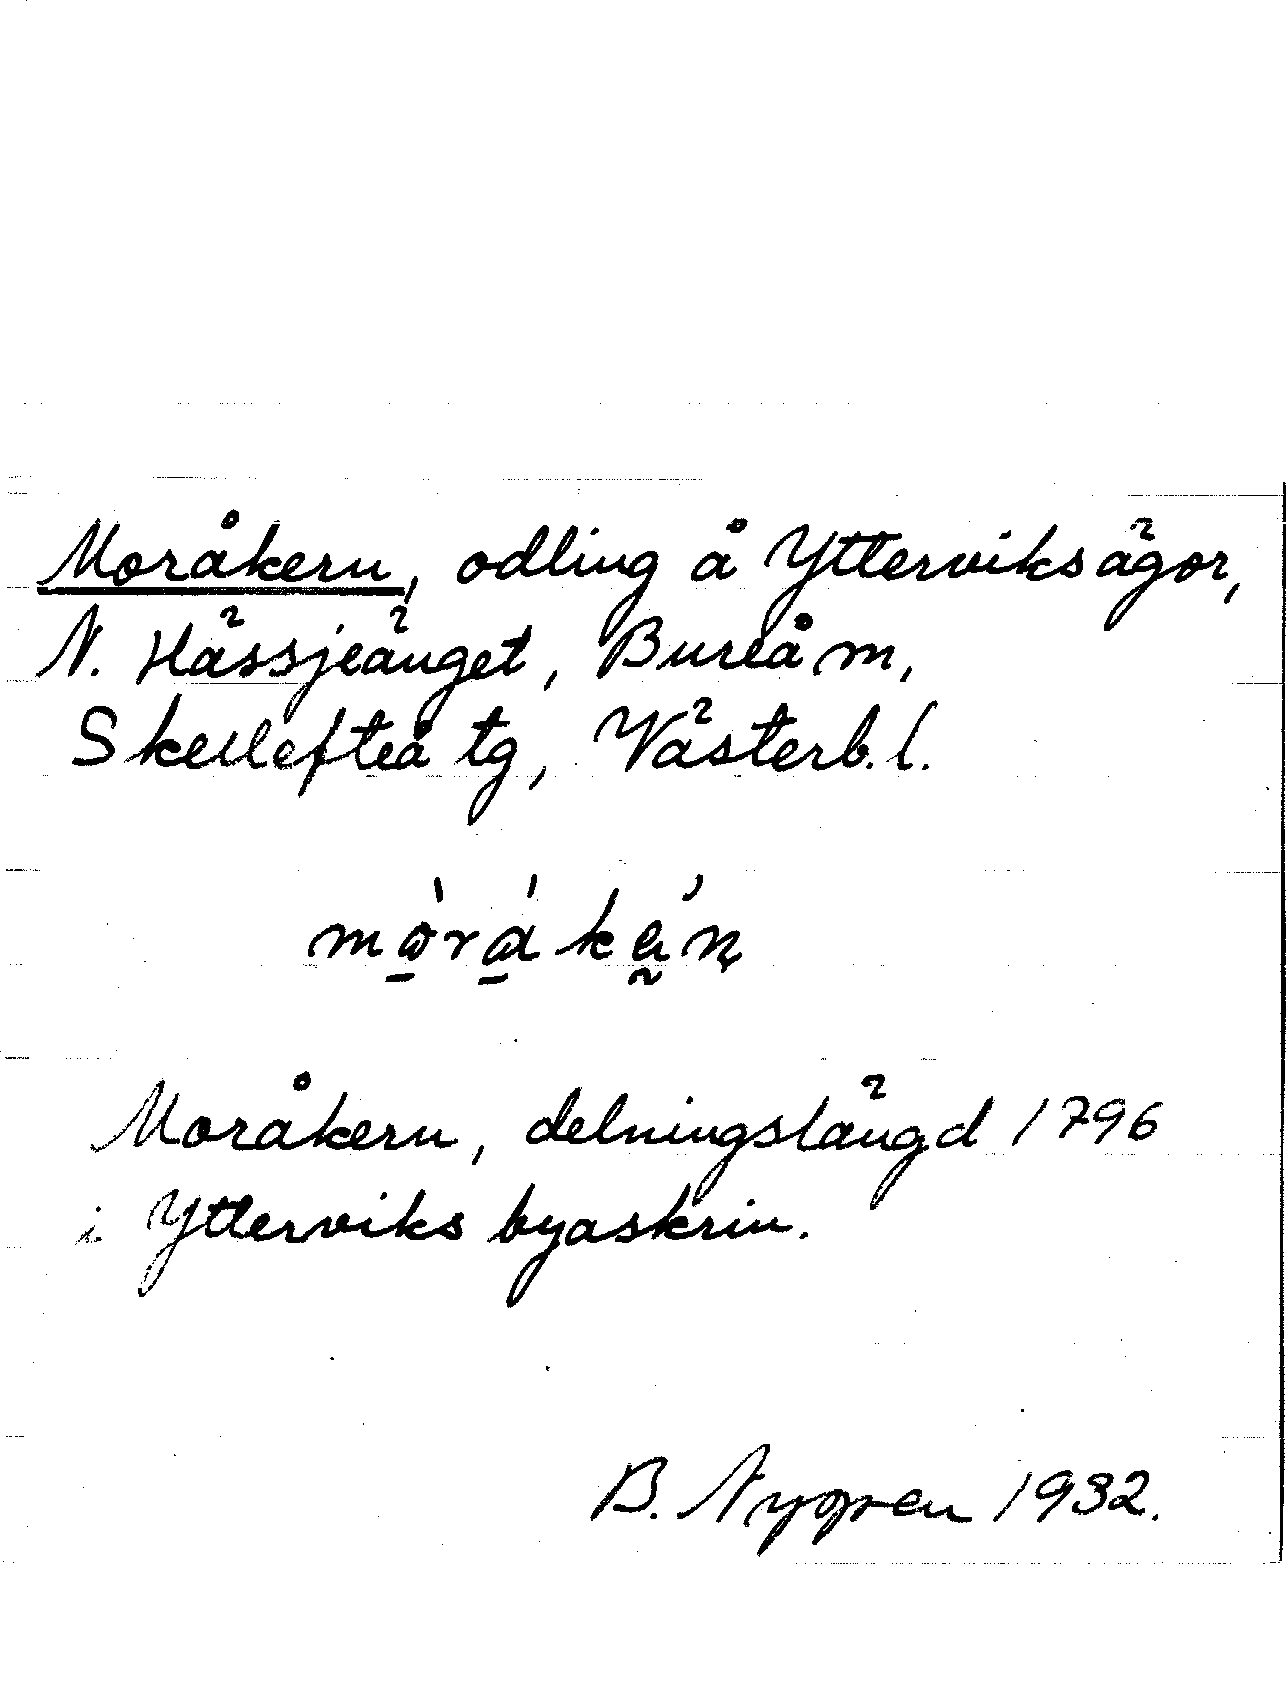 Moråkern, odling å Ytterviks ägor,
N. Hässjeänget, Bureå m,
Skellefteå tg, Västerb. l.
Moråkern, delningslängd 1796
i Ytterviks byaskrin.
B. Nygren 1932.